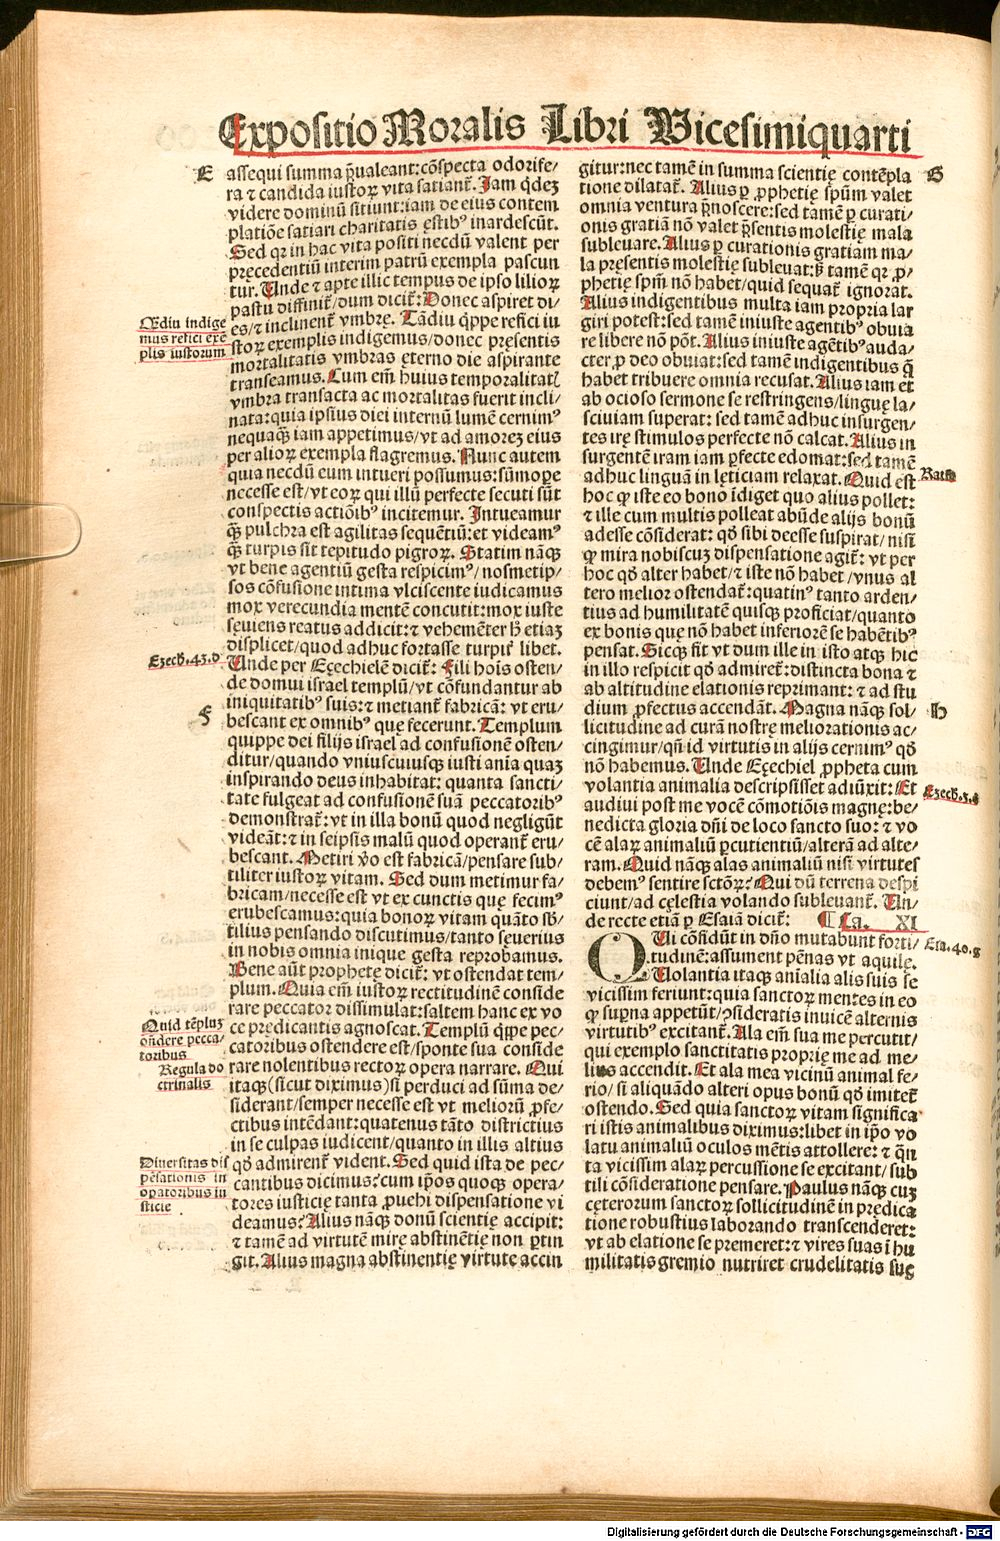 Expositio Moralis Libri Vicesimiquarti
E
assequi summa p̃ualeant: cõspecta odorife/
ra ⁊ candida iustoꝝ vita satiant̃. Jam q̃deꝫ
videre dominũ sitiunt: iam de eius contem
platiõe satiari charitatis ęstibꝰ inardescũt.
Sed qꝛ in hac vita positi necdũ valent per
pręcedentiũ interim patrũ exempla pascun
tur. Unde ⁊ apte illic tempus de ipso lilioꝝ
pastu diffinit̃/dum dicit̃: Donec aspiret di/
es/⁊ inclinent̃ vmbrę. Tãdiu q̃ppe refici iu
stoꝝ exemplis indigemus/donec pręsentis
mortalitatis vmbras ęterno die aspirante
transeamus. Cum em̃ huius temporalitatꝭ
vmbra transacta ac mortalitas fuerit incli/
nata: quia ipsius diei internũ lumẽ cernimꝰ
nequaq̃ꝫ iam appetimus/vt ad amoreꝫ eius
per alioꝝ exempla flagremus. Nunc autem
quia necdũ eum intueri possumus: sũmope
necesse est/vt eoꝝ qui illũ perfecte secuti sũt
conspectis actiõibꝰ incitemur. Intueamur
q̃ꝫ pulchra est agilitas sequentiũ: et videamꝰ
q̃ꝫ turpis sit tepitudo pigroꝝ. Statim nãqꝫ
vt bene agentiũ gesta respicimꝰ/nosmetip/
sos cõfusione intima vlciscente iudicamus
mox verecundia mentẽ concutit: mox iuste
sęuiens reatus addicit: ⁊ vehemẽter h̃ etiaꝫ
displicet/quod adhuc fortasse turpit̃ libet.
Unde per Eęechielẽ dicit̃: Fili hoĩs osten/
de domui israel templũ/vt cõfundantur ab
iniquitatibꝰ suis: ⁊ metiant̃ fabricã: vt eru/
bescant ex omnibꝰ quę fecerunt. Templum
quippe dei filijs israel ad confusionẽ osten/
ditur/quando vniuscuiusqꝫ iusti aĩa quaꝫ
inspirando deus inhabitat: quanta sancti/
tate fulgeat ad confusionẽ suã peccatoribꝰ
demonstrat̃: vt in illa bonũ quod negligũt
videãt: ⁊ in seipsis malũ quod operant̃ eru/
bescant. Metiri ṽo est fabricã/pensare sub/
tiliter iustoꝝ vitam. Sed dum metimur fa/
bricam/necesse est vt ex cunctis que fecimꝰ
erubescamus: quia bonoꝝ vitam quãto sb̃/
tilius pensando discutimus/tanto seuerius
in nobis omnia inique gesta reprobamus.
Bene aũt prophetę dicit̃: vt ostendat tem/
plum. Quia em̃ iustoꝝ rectitudinẽ conside
rare peccator dissimulat: saltem hanc ex vo
ce prędicantis agnoscat. Templũ q̃ppe pec/
catoribus ostendere est/sponte sua conside
rare nolentibus rectoꝝ opera narrare. Qui
itaqꝫ (sicut diximus) si perduci ad sũma de/
siderant/semper necesse est vt melioꝝ ꝓfe/
ctibus intẽdant: quatenus tãto districtius
in se culpas iudicent/quanto in illis altius
qđ admirent̃ vident. Sed quid ista de pec/
cantibus dicimus? cum ip̃os quoqꝫ opera/
tores iusticię tanta ꝓuehi dispensatione vi
deamus? Alius nãqꝫ donũ scientię accipit:
⁊ tamẽ ad virtutẽ mirę abstinẽtię non ꝑtin
git. Alius magna abstinentię virtute accin
Q̃diu indige
mus refici exẽ
plis iustorum
Eęech̃. 43. d
F
Quid tẽpluꝫ
oñdere pecca/
toribus
Regula do
ctrinalis
Diuersitas dis
pẽsationis in
oꝑatoribus iu
sticie
gitur: nec tamẽ in summa scientię contẽpla
tione dilatat̃. Alius ꝑ ꝓphetię sp̃um valet
omnia ventura p̃noscere: sed tamẽ ꝑ curati/
onis gratiã nõ valet p̃sentis molestię mala
subleuare. Alius ꝑ curationis gratiam ma/
la pręsentis molestię subleuat: h̃ tamẽ qꝛ ꝓ/
phetię sp̃m nõ habet/quid sequat̃ ignorat.
Alius indigentibus multa iam propria lar
giri potest: sed tamẽ iniuste agentibꝰ obuia
re libere nõ põt. Alius iniuste agẽtibꝰ auda/
cter ꝓ deo obuiat: sed tamẽ indigentibus q̃
habet tribuere omnia recusat. Alius iam et
ab ocioso sermone se restringens/linguę la/
sciuiam superat: sed tamẽ adhuc insurgen/
tes irę stimulos perfecte nõ calcat. Alius in
surgentẽ iram iam ꝑfecte edomat: sed tamẽ
adhuc linguã in lęticiam relaxat. Quid est
hoc ꝙ iste eo bono ĩdiget quo alius pollet:
⁊ ille cum multis polleat abũde alijs bonũ
adesse cõsiderat: qđ sibi deesse suspirat/ nisi
ꝙ mira nobiscuꝫ dispensatione agit̃: vt per
hoc qđ alter habet/⁊ iste nõ habet/vnus al
tero melior ostendat̃: quatinꝰ tanto arden/
tius ad humilitatẽ quisqꝫ proficiat/quanto
ex bonis quę nõ habet inferiorẽ se habẽtibꝰ
pensat. Sicqꝫ fit vt dum ille in isto atqꝫ hic
in illo respicit qđ admiret̃: distincta bona ⁊
ab altitudine elationis reprimant: ⁊ ad stu
dium ꝓfectus accendãt. Magna nãqꝫ sol/
licitudine ad curã nostrę meliorationis ac/
cingimur/qñ id virtutis in alijs cernimꝰ qđ
nõ habemus. Unde Eęechiel ꝓpheta cum
volantia animalia descripsisset adiũxit: Et
audiui post me vocẽ cõmotiõis magnę: be/
nedicta gloria dñi de loco sancto suo: ⁊ vo
cẽ alaꝝ animaliũ ꝑcutientiũ/alterã ad alte/
ram. Quid nãqꝫ alas animaliũ nisi virtutes
debemꝰ sentire sctõꝝ? Qui dũ terrena despi
ciunt/ad cęlestia volando subleuant̃. Un/
de recte etiã ꝑ Esaiã dicit̃: ¶ Ca. XI
QUi cõfidũt in dño mutabunt forti/
tudinẽ: assument pẽnas vt aquile.
Uolantia itaqꝫ aĩalia alis suis se
vicissim feriunt: quia sanctoꝝ mentes in eo
ꝙ sup̃na appetũt/ꝯsideratis inuicẽ alternis
virtutibꝰ excitant̃. Ala em̃ sua me percutit/
qui exemplo sanctitatis proprię me ad me/
lius accendit. Et ala mea vicinũ animal fe/
rio/ si aliquãdo alteri opus bonũ qđ imitet̃
ostendo. Sed quia sanctoꝝ vitam significa
ri istis animalibus diximus: libet in ip̃o vo
latu animaliũ oculos mẽtis attollere: ⁊ q̃n
ta vicissim alaꝝ percussione se excitant/sub
tili cõsideratione pensare. Paulus nãqꝫ cuꝫ
cęterorum sanctoꝝ sollicitudinẽ in prędica
tione robustius laborando transcenderet:
vt ab elatione se premeret: ⁊ vires suas ĩ hu
militatis gremio nutriret crudelitatis suę
G
Ratio
H
Eęech̃. 3. c
Esa. 40. g
Digitalisierung gefördert durch die Deutsche Forschungsgemeinschaft - DFG